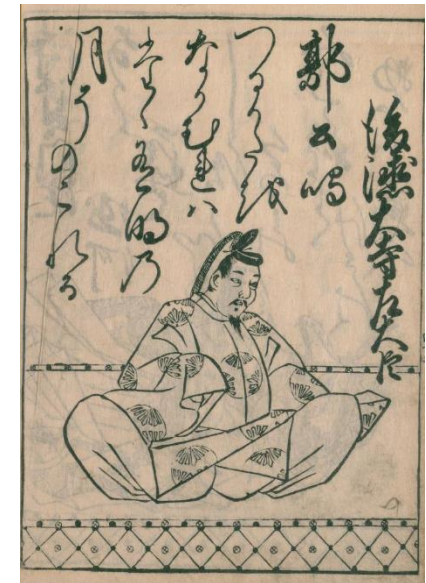 後徳大寺左大臣
郭公鳴
つるかた越
なかむ連ハ
たゝ有明乃
月そのこれる